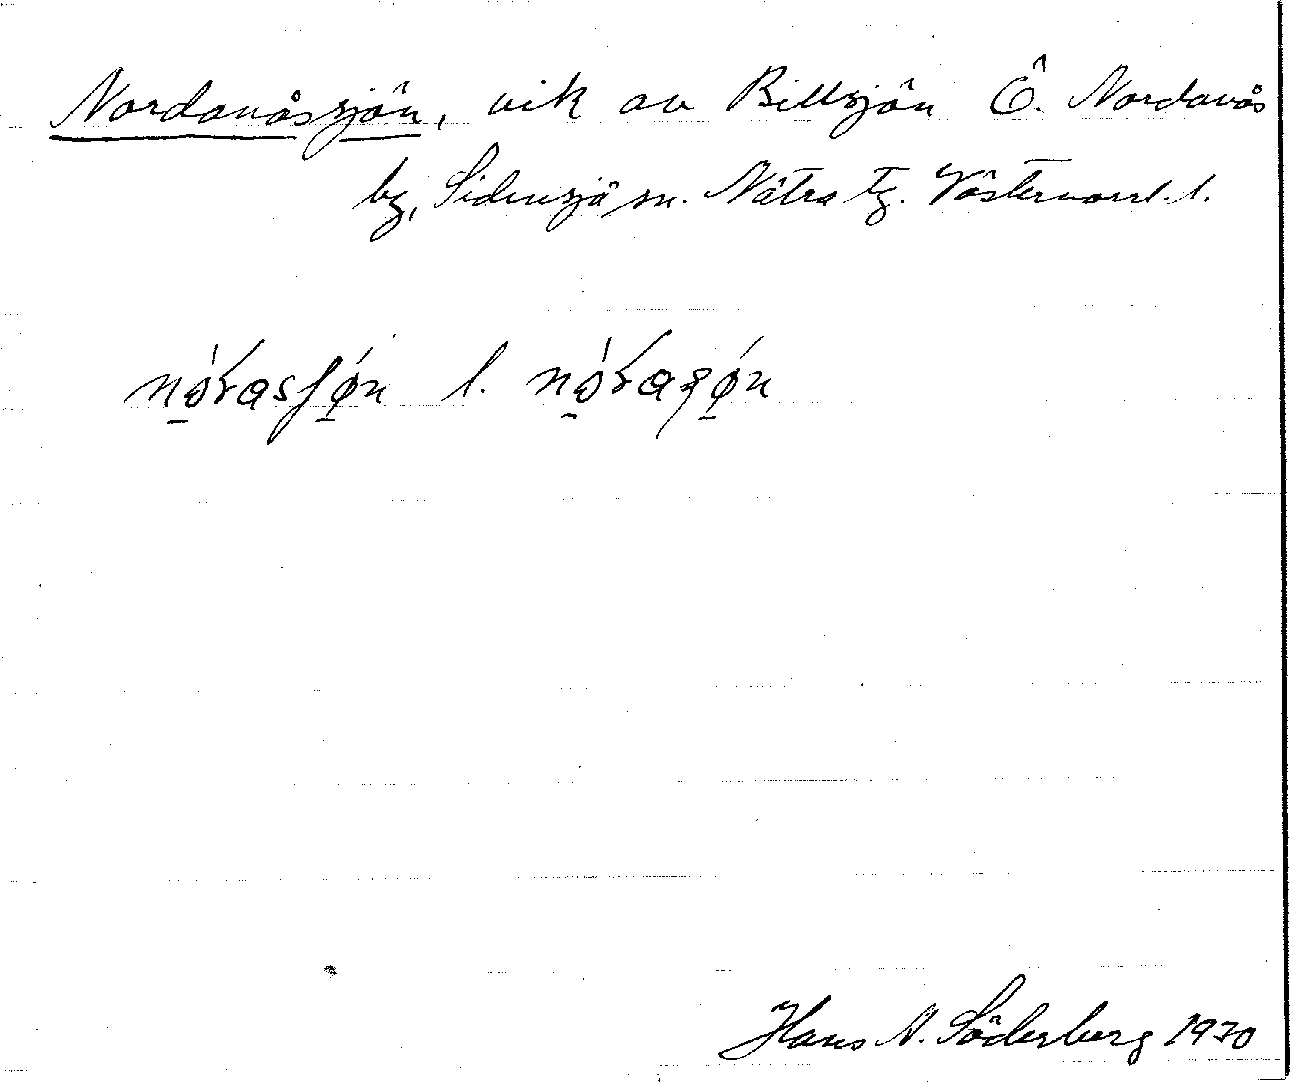 Nordanåssjön, vik av Billsjön Ö. Nordanås
by, Sidensjö sn. Nätra tg. Västernorrl. l.
l.
Hans N. Söderberg 1930